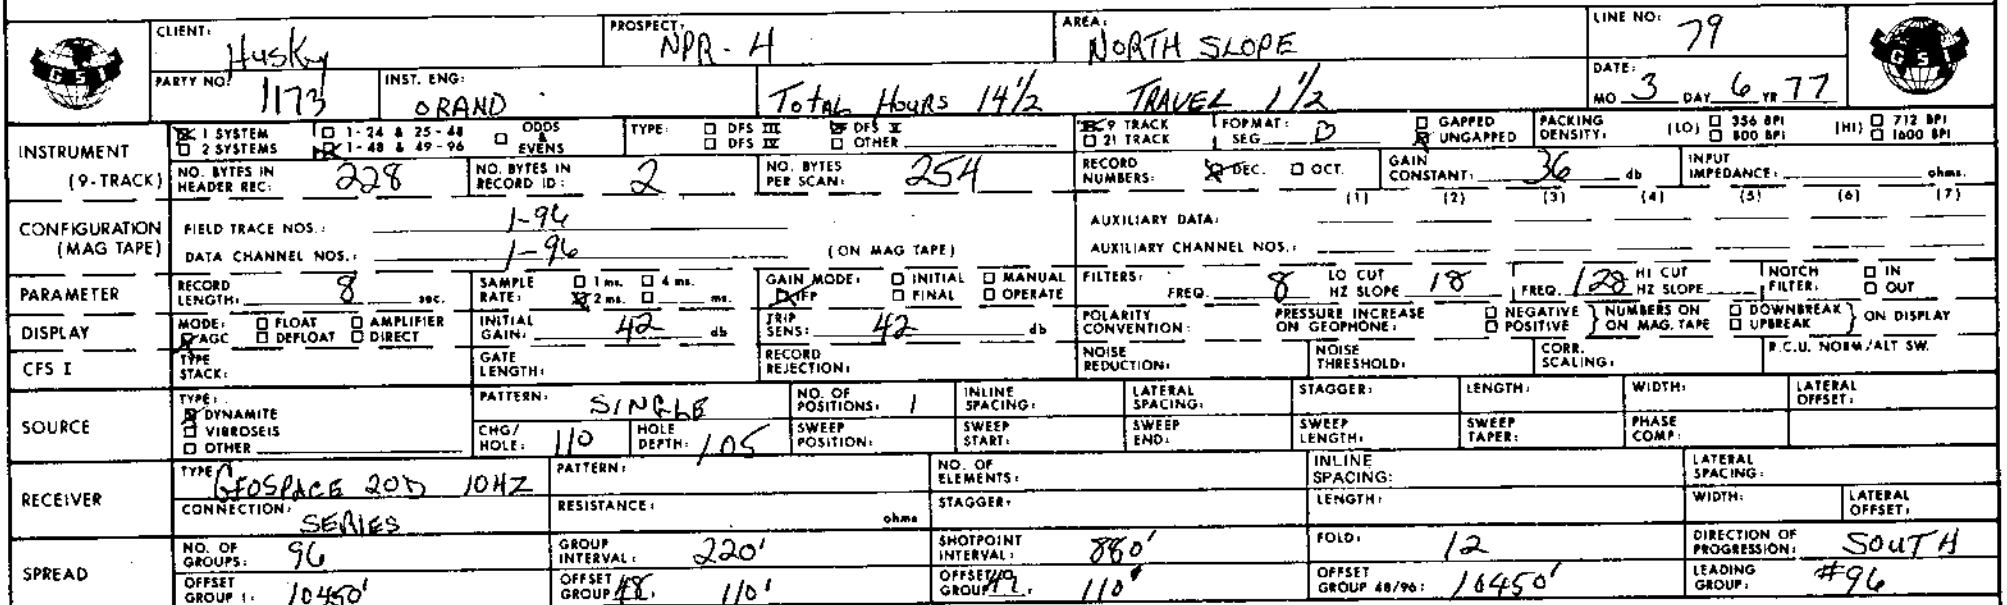 GSI CLIENT: Husky PROSPECT: NPR-4 AREA: NORTH SLOPE LINE NO: 79 GSI
PARTY NO: 1173 INST. ENG: ORAND Total Hours 14 1/2 TRAVEL 1 1/2 DATE: MO 3 DAY 6 YR 77
INSTRUMENT (9-TRACK) 1 SYSTEM 1-24 & 25-48 ODDS & EVENS TYPE: DFS III DFS V 9 TRACK FORMAT: GAPPED PACKING DENSITY: (LO) 356 BPI (HI) 712 BPI
2 SYSTEMS 1-48 & 49-96 DFS IV OTHER 21 TRACK SEG B UNGAPPED 800 BPI 1600 BPI
NO. BYTES IN HEADER REC: 228 NO. BYTES IN RECORD ID: 2 NO. BYTES PER SCAN: 254 RECORD NUMBERS: DEC. OCT. GAIN CONSTANT: 36 db INPUT IMPEDANCE: ohms.
(1) (2) (3) (4) (5) (6) (7)
CONFIGURATION (MAG TAPE) FIELD TRACE NOS.: 1-96 AUXILIARY DATA:
DATA CHANNEL NOS.: 1-96 (ON MAG TAPE) AUXILIARY CHANNEL NOS.:
PARAMETER RECORD LENGTH: 8 sec. SAMPLE RATE: 1 ms. 4 ms. 2 ms. ms. GAIN MODE: INITIAL MANUAL IFP FINAL OPERATE FILTERS: FREQ. 8 LO CUT HZ SLOPE 18 FREQ. 128 HI CUT HZ SLOPE NOTCH FILTER: IN OUT
DISPLAY MODE: FLOAT AMPLIFIER AGC DEFLOAT DIRECT INITIAL GAIN: 42 db TRIP SENS: 42 db POLARITY CONVENTION: PRESSURE INCREASE ON GEOPHONE: NEGATIVE POSITIVE NUMBERS ON ON MAG. TAPE DOWNBREAK UPBREAK ON DISPLAY
CFS I TYPE STACK: GATE LENGTH: RECORD REJECTION: NOISE REDUCTION: NOISE THRESHOLD: CORR. SCALING: R.C.U. NORM/ALT SW.
SOURCE TYPE: DYNAMITE VIBROSEIS OTHER PATTERN: SINGLE NO. OF POSITIONS: 1 INLINE SPACING: LATERAL SPACING: STAGGER: LENGTH: WIDTH: LATERAL OFFSET:
CHG/HOLE: 110 HOLE DEPTH: 105 SWEEP POSITION: SWEEP START: SWEEP END: SWEEP LENGTH: SWEEP TAPER: PHASE COMP:
RECEIVER TYPE GEOSPACE 20D 10HZ PATTERN: NO. OF ELEMENTS: INLINE SPACING: LATERAL SPACING:
CONNECTION: SERIES RESISTANCE: ohms STAGGER: LENGTH: WIDTH: LATERAL OFFSET:
SPREAD NO. OF GROUPS: 96 GROUP INTERVAL: 220' SHOTPOINT INTERVAL: 880' FOLD: 12 DIRECTION OF PROGRESSION: SOUTH
OFFSET GROUP 1: 10450' OFFSET GROUP 48: 110' OFFSET GROUP 110' OFFSET GROUP 48/96: 10450' LEADING GROUP: #96